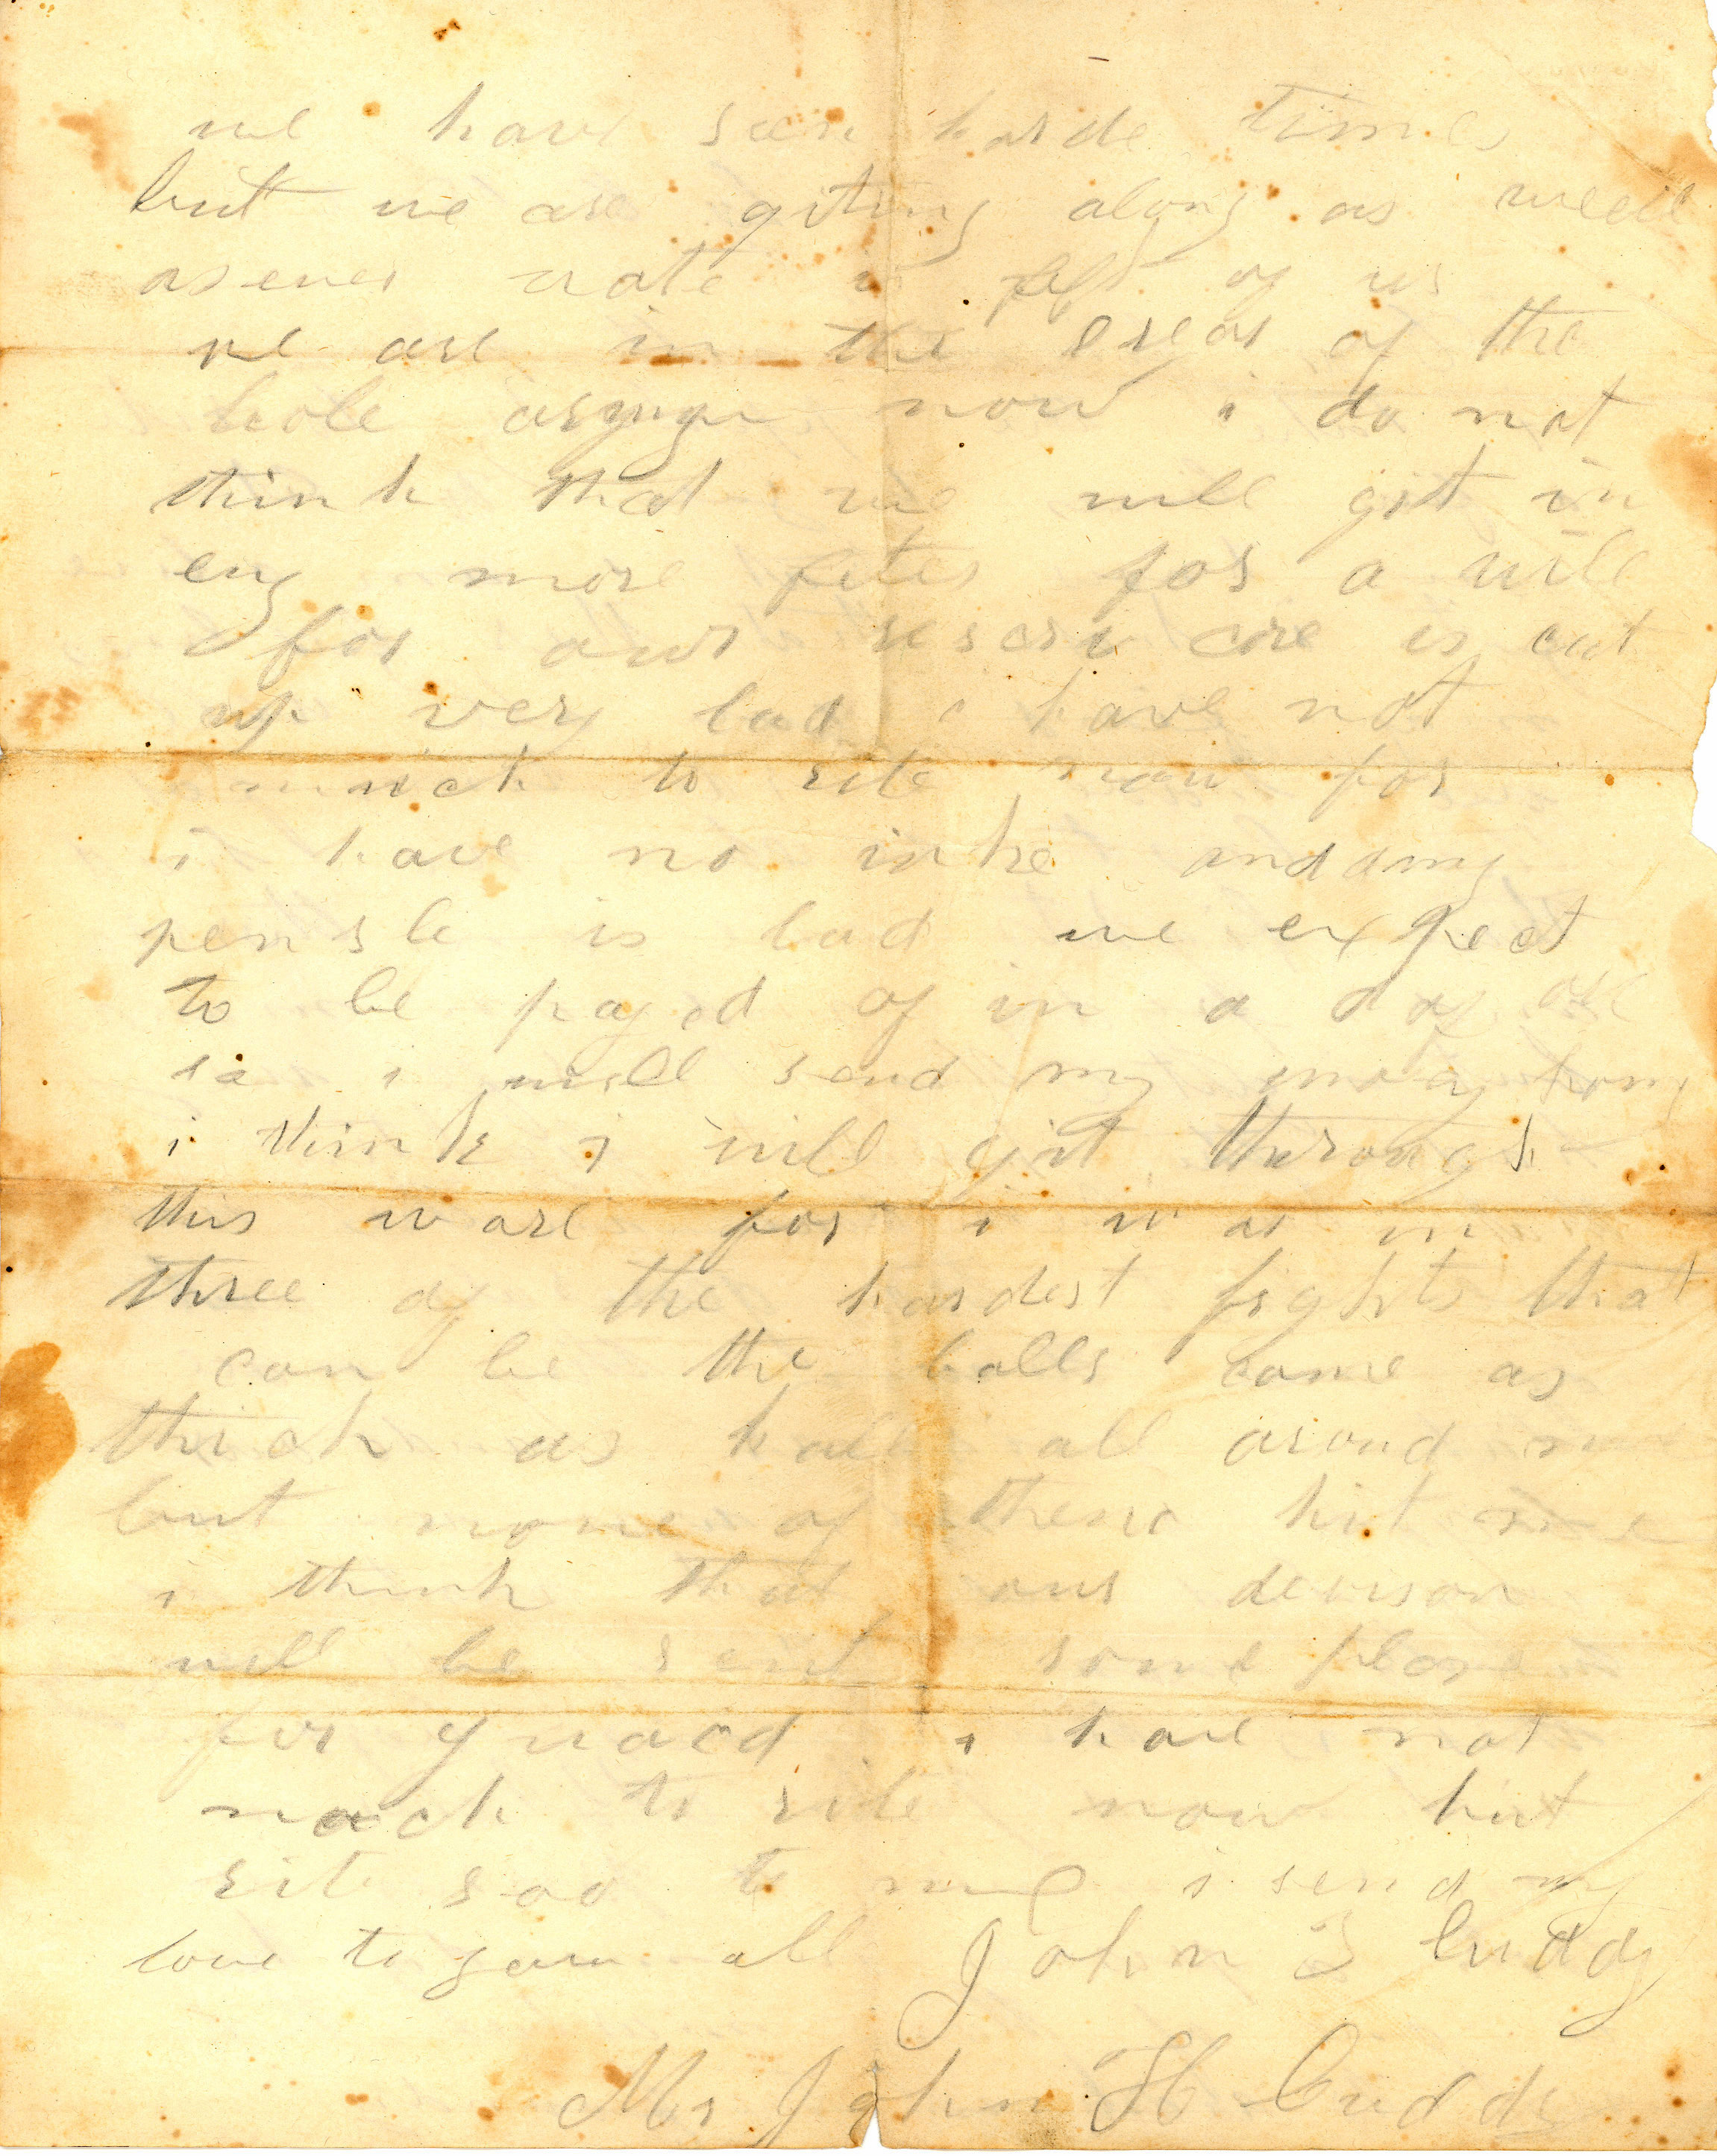 we have seen harde times
but we are giting along as well
as ever wate is left of us
we are in the erear of the
hole now i do not
think that we will git in
eny more fites for a wile
for awr reserv core is cut
up very bad i have not
much to rite now for
i have no inke and my
pensle is bad we expect
to be payed of in a day ore
i will send my mony home
i think i will git through
this ware for i was in
three of the hardest fights that
can be the balls come as
thick as hall all aroud me
but none of them hit me
i think that our devison
will be sent some place
for guard i have not
much to rite now but
rite soo to me i send my
love to you all John S Cuddy
Mr John H Cuddy